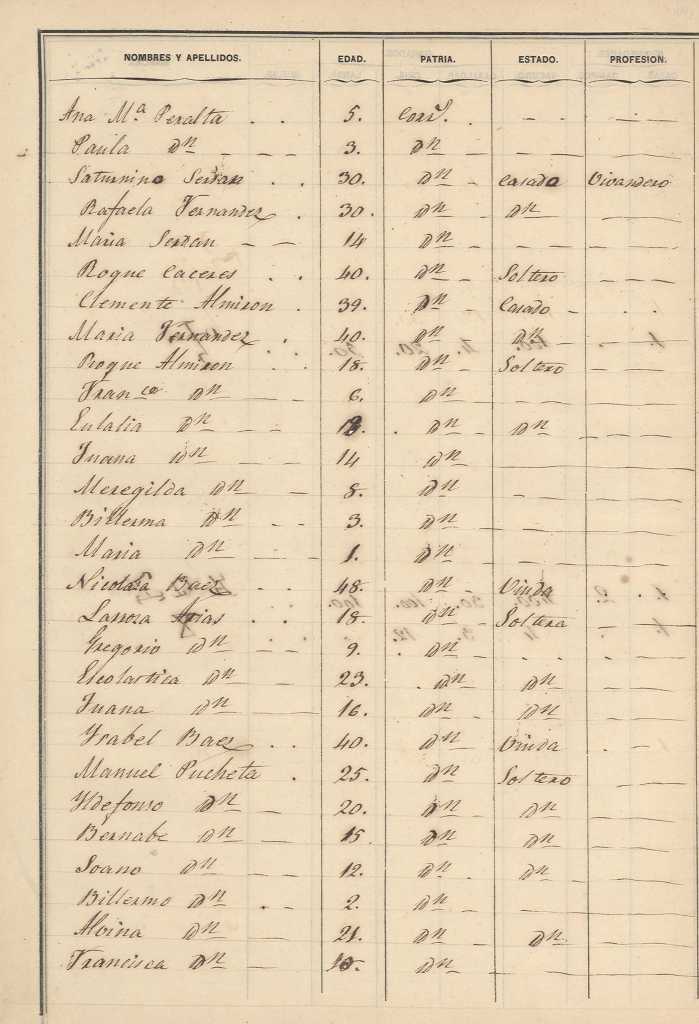 NOMBRES Y APELLIDOS. EDAD. PATRIA. ESTADO. PROFESION.
Ana Mª Peralta 5. Corrs.
Paula Dn 3. Dn
Saturnino Serdan 30. Dn Casado Vivandero
Rafaela Fernandez 30. Dn Dn
Maria Serdan 14 Dn
Roque Caceres 40. Dn Soltero
Clemente Almiron 39. Dn Casado
Maria Fernandez 40. Dn Dn
Roque Almiron 18. Dn Soltero
Franco Dn 6. Dn
Eulalia Dn Dn Dn
Juana Dn 14 Dn
Meregilda Dn 8. Dn
Billerma Dn 3. Dn
Maria Dn 1. Dn
Nicolasa Baez 48. Dn Viuda
Arias 18. Dn Soltera
Gregorio Dn 9. Dn
Escolastica Dn 23. Dn Dn
Juana Dn 16. Dn Dn
Ysabel Baez 40. Dn Viuda
Manuel Pucheta 25. Dn Soltero
Yldefonso Dn 20. Dn Dn
Bernabe Dn 15 Dn Dn
Soano Dn 12. Dn Dn
Billermo Dn 2. Dn
Alvina Dn 21. Dn Dn
Francisca Dn 10. Dn